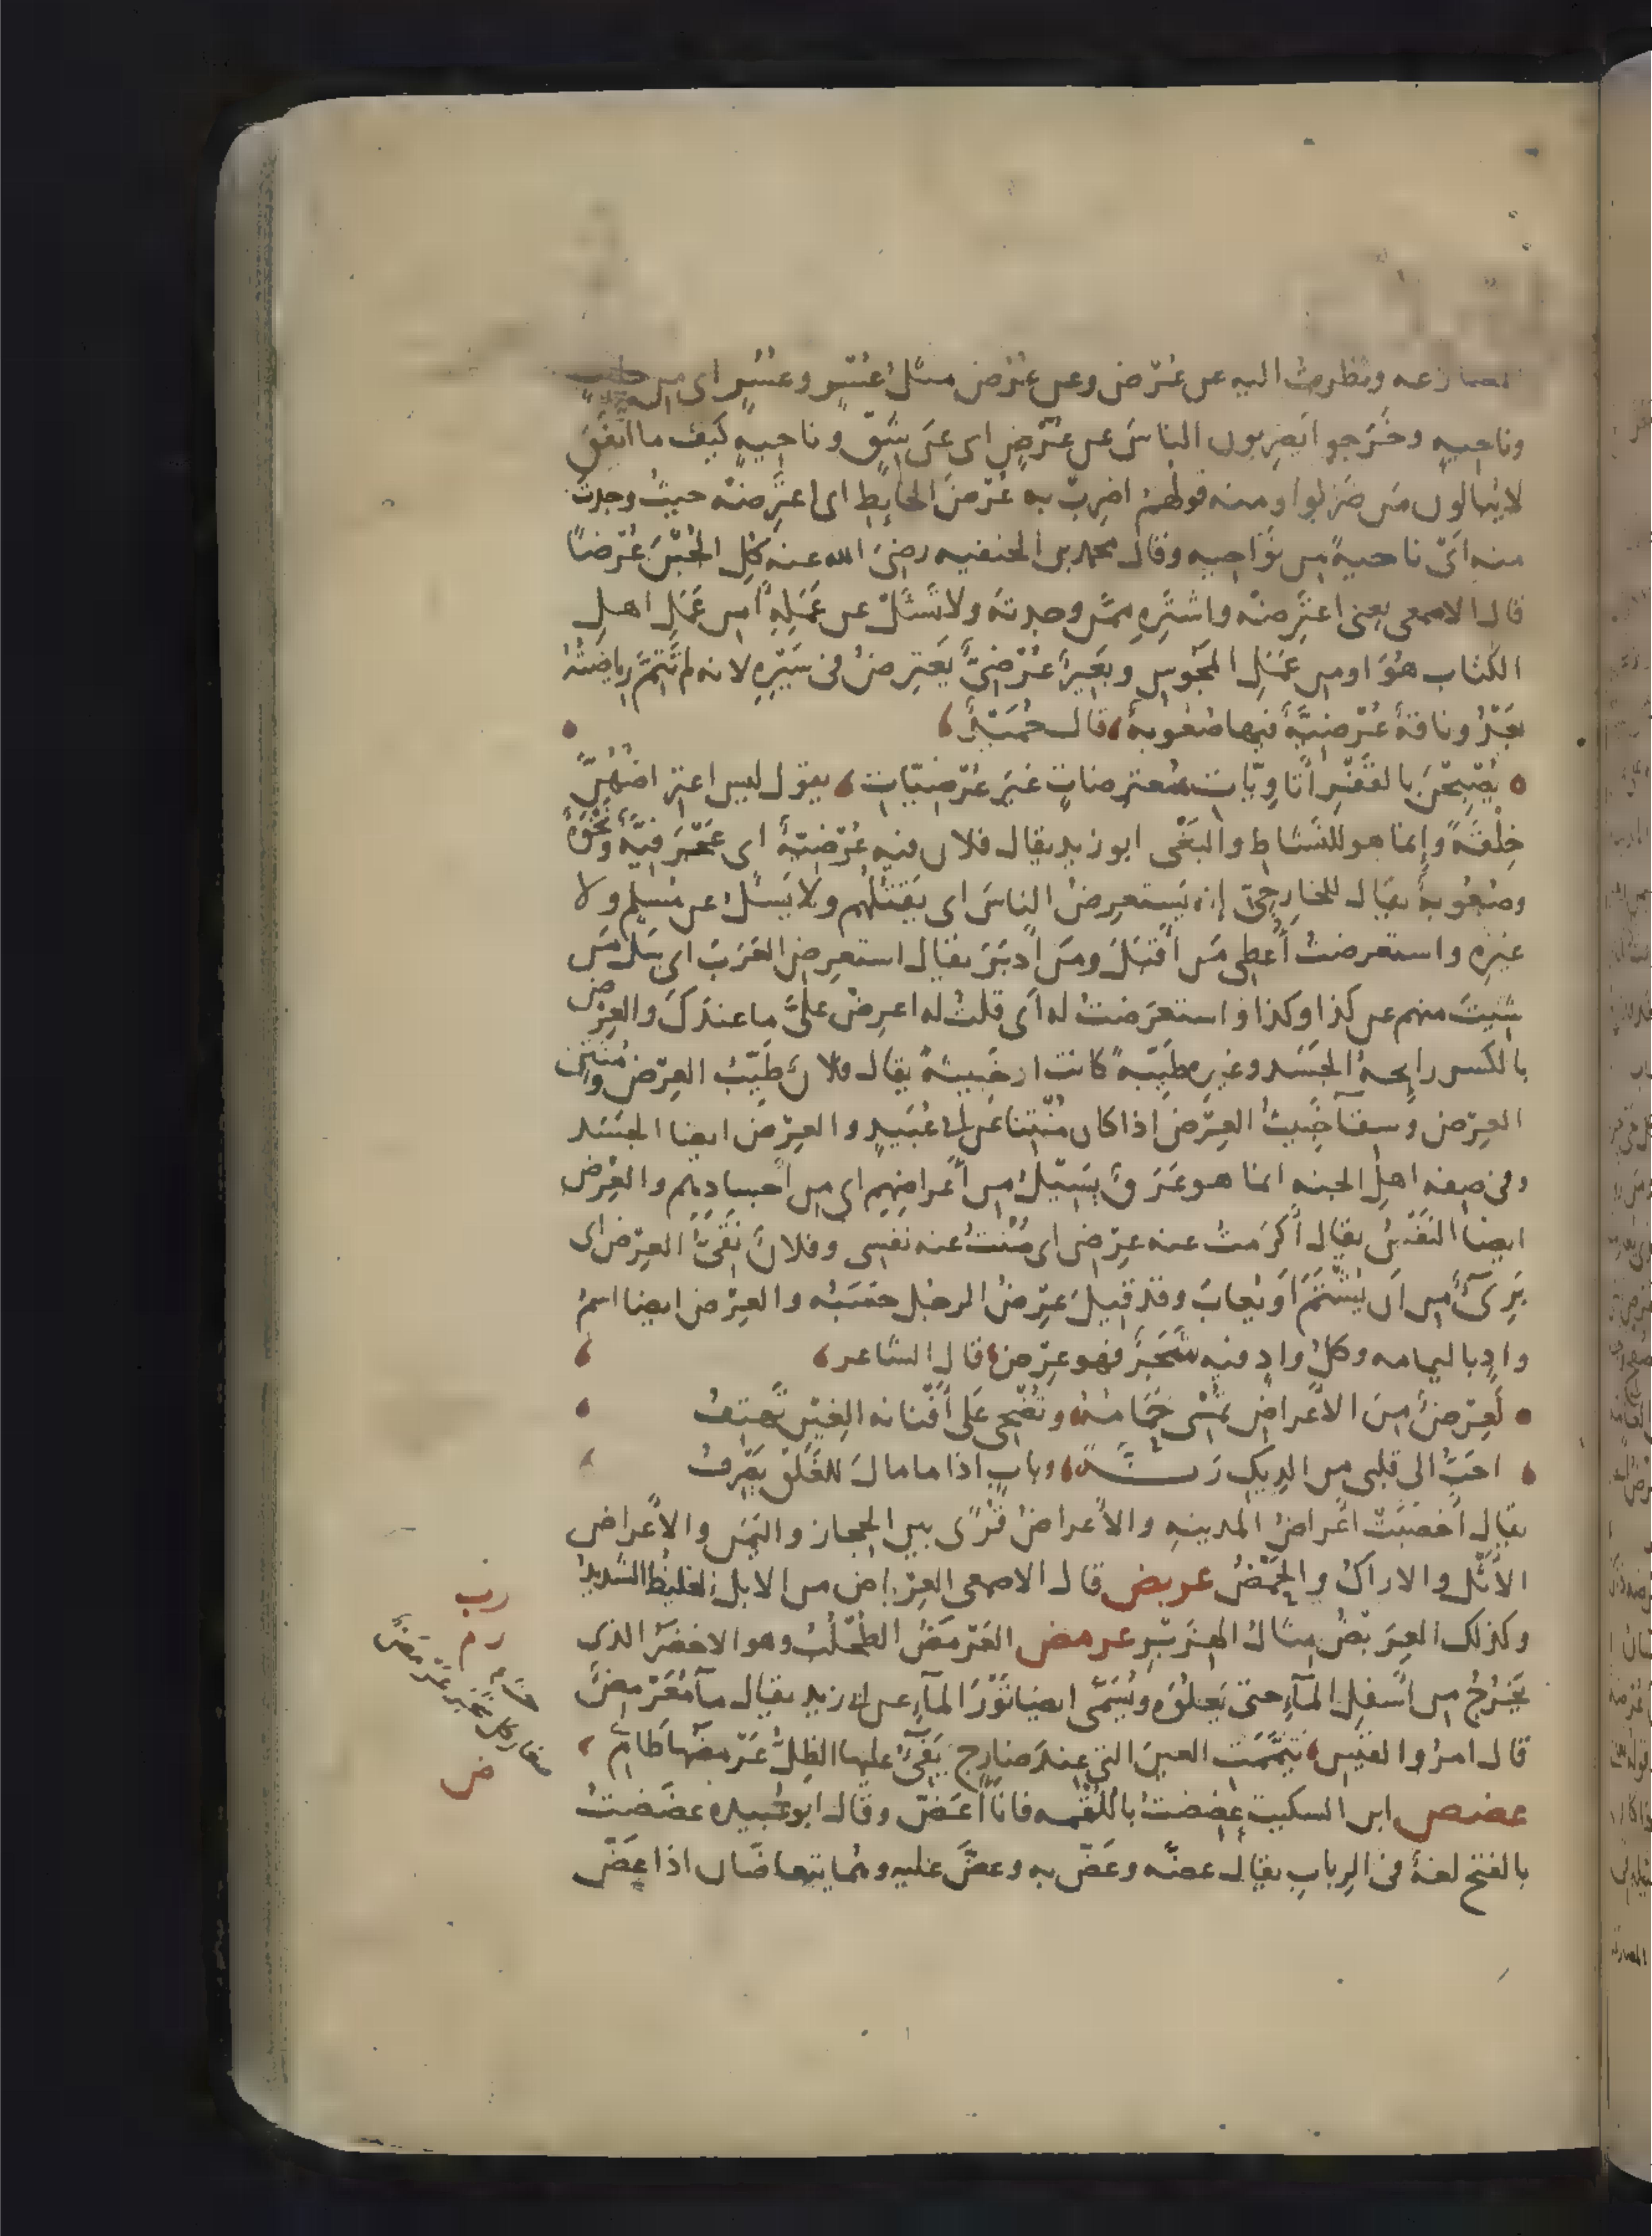 ونظرت اليه عن عُرْض وعن عُرُض مثل عُسْرٍ وعُسُرٍ اى من جانب
وناحيهٍ وخَرَجوا يَضرِبون الناسَ عن عُرْضٍ اى عن شِقٍّ وناحيهٍ كَيفَ ما اتَّفَقَ
لا يُبالون مَن ضَرَبوا ومنه قولهُمْ اضرِبْ به عُرْضَ الحايِطِ اى اعتَرِضْهُ حيثُ وجدتَ
منه اَىَّ ناحيةٍ من نَوَاحِيه وقال محمد بن الحنفيه رضىَ الله عنه كُلِ الجُبْنَ عُرْضًا
قال الاصمعى يعنى اعتَرِضْهُ واشتَرِهِ ممَّن وجدتهُ ولا تَسْئَلْ عن عَمَلِهِ اَمِن عَمَلِ اهلِ
الكتاب هُوَ او من عَمَلِ المَجُوسِ وبَعِيرٌ عُرْضِىٌّ يَعتَرِضُ فى سَيْرِهِ لانه لم تَتِمَّ رِياضَتُهُ
بَعْدُ وناقةٌ عُرْضيَّةٌ فيها صُعُوبهٌ قال حُمَيْدٌ
يُصْبِحْنَ بالقَفْرِ اَتَاوِيّاتِ مُعتَرِضاتٍ غَيرَ عُرْضِيّاتِ يقول ليس اعتراضُهُنَّ
خِلْقَةً وإنما هو للنَّشاط والبَغْى ابو زيد يقال فلان فيه عُرْضِيّةٌ اى عَجْرَفِيَّةٌ ونَخْوَةٌ
وصُعُوبهٌ يقال للخارِجىّ إنه يَستعرِضُ الناسَ اى يَقتُلُهم ولا يَسئلُ عن مُسلِمٍ ولا
غيرِهِ واستعرضتُ اُعطِى مَن اَقْبَلَ ومَن اَدبَرَ يقال استعرِضِ العَرَبَ اى سَلْ مَن
شِيتَ منهم عن كذا وكذا واستعرَضتُ له اَى قلتُ له اعرِضْ علىَّ ما عندَكَ والعِرْض
بالكسر رايحهُ الجَسَد وغيرِه طَيِّبَةً كانت او خَبيثةً يقال فلانٌ طَيِّبُ العِرْض ومُنْتِنُ
العِرْض وسقآ خَبِيثُ العِرْض اذا كان مُنْتِنا عن ابى عُبَيدٍ والعِرْض ايضا الجَسَد
وفى صِفه اهلِ الجنه انما هو عَرَقٌ يَسِيلُ من اَعراضِهِم اى من اَجسادِهِم والعِرْض
ايضا النَفْسُ يقال اَكرَمتُ عنه عِرْضى اى صُنْتُ عنه نفسِى وفلانٌ نَقِىُّ العِرْض اى
بَرِىٌ من اَن يُشْتَمَ اَو يُعابَ وقد قيلَ عِرْضُ الرجُل حَسَبُه والعِرْض ايضا اسمُ
وادٍ باليمامه وكلُّ وادٍ فيه شَجَرٌ فهو عِرْض قال الشاعر
لَعِرْضٌ مِنَ الاَعراضِ تُمْسِى حَمَامُهُ وتُضْحِى عَلَى اَفْنانه الغِيْنِ تَهتِفُ
احَبُّ الى قلبى من الدِيكِ رَنَّةً وبابٍ اذا ما مالَ للغَلْقِ يَصْرِفُ
يقال اَخصَبَتْ اَعراضُ المدينهِ والاَعراضُ قُرًى بين الحِجاز واليَمَن والاَعراض
الاَثْل والاراكُ والحَمْضُ عربض قال الاصمعى العِرْباض من الابل الغليظُ الشديدُ
وكذلك العِرَبْضُ مثالُ الهِزَبْرِ عرمض العَرْمَضُ الطُحْلُبُ وهو الاخضرُ الذى
يَخرُجُ من اَسفلِ المآءِ حتى يَعلُوَه ويُسَمَّى ايضا ثَوْرَ المآءِ عن ابى زيد يقال مآ مُعَرْمِضٌ
قال امرُوا القيس تَيَمَّمَت العينَ التى عندَ ضارِجٍ يَفِىُ عليها الظِلُّ عَرْمَضُها طَامٍ
عضض ابن السكيت عضِضتُ باللُقْمه فانَا اَعَضّ وقال ابو عُبيده عضَضتُ
بالفتح لغةٌ فى الرِبابِ يقال عضَّه وعَضّ به وعضَّ عليه وهُما يتعاضّان اذا عَضّ
رب
رم
ض